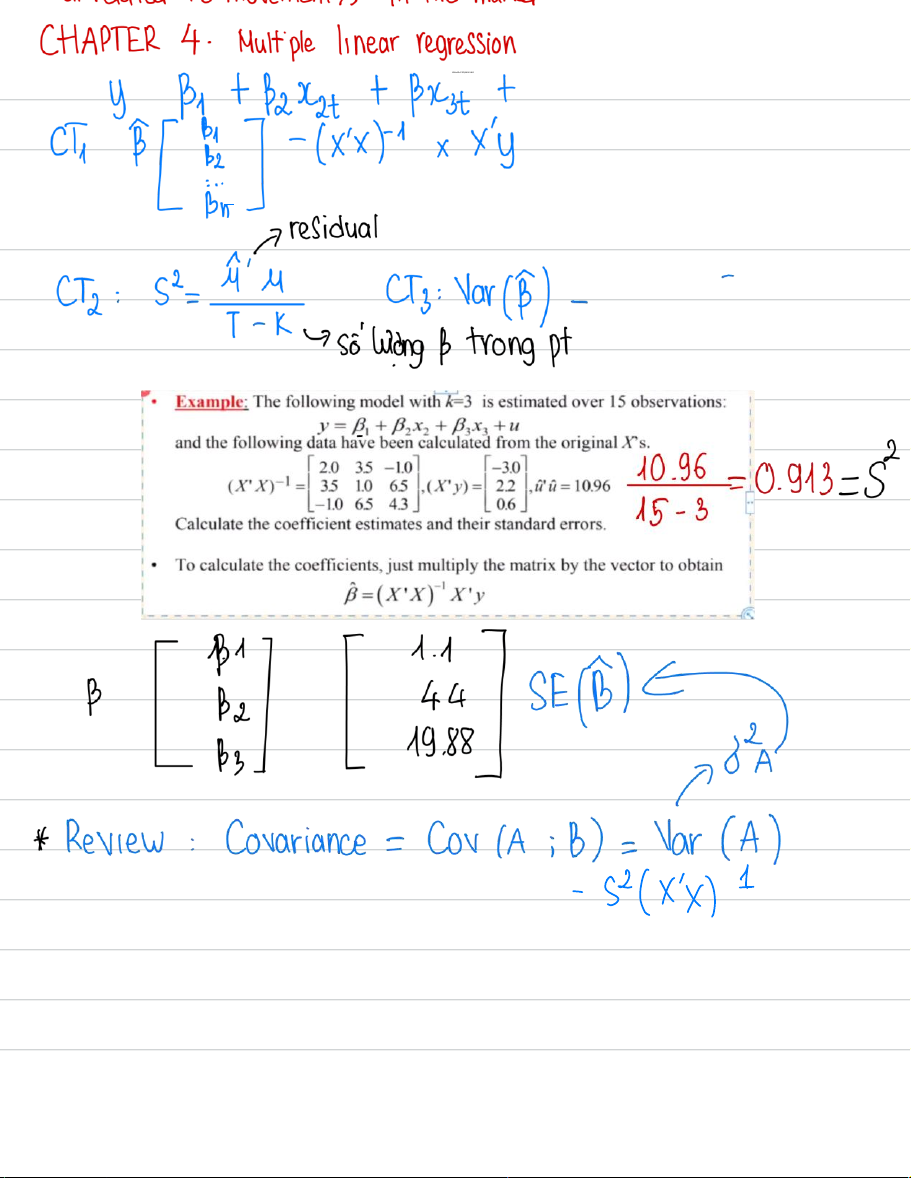 CHAPTER 4. Multiple linear regression
y β1 + β2 x2t + βx3t +
CT1 β̂ [β1 β2 ... βn] - (X'X)-1 x X'y
residual
CT2 : S² = û'u / T - K CT3 : Var (β̂) -
số lượng β trong pt
• Example: The following model with k=3 is estimated over 15 observations:
y = β1 + β2x2 + β3x3 + u
and the following data have been calculated from the original X's.
(X'X)⁻¹ = [2.0 3.5 -1.0; 3.5 1.0 6.5; -1.0 6.5 4.3], (X'y) = [-3.0; 2.2; 0.6], û'û = 10.96
10.96 / 15 - 3 = 0.913 = S²
Calculate the coefficient estimates and their standard errors.
• To calculate the coefficients, just multiply the matrix by the vector to obtain
β̂ = (X'X)⁻¹ X'y
β [β1 β2 β3] [1.1 44 19.88] SE(B̂)
δ²A
* Review : Covariance = Cov (A ; B) = Var (A)
- S²(X'X) 1